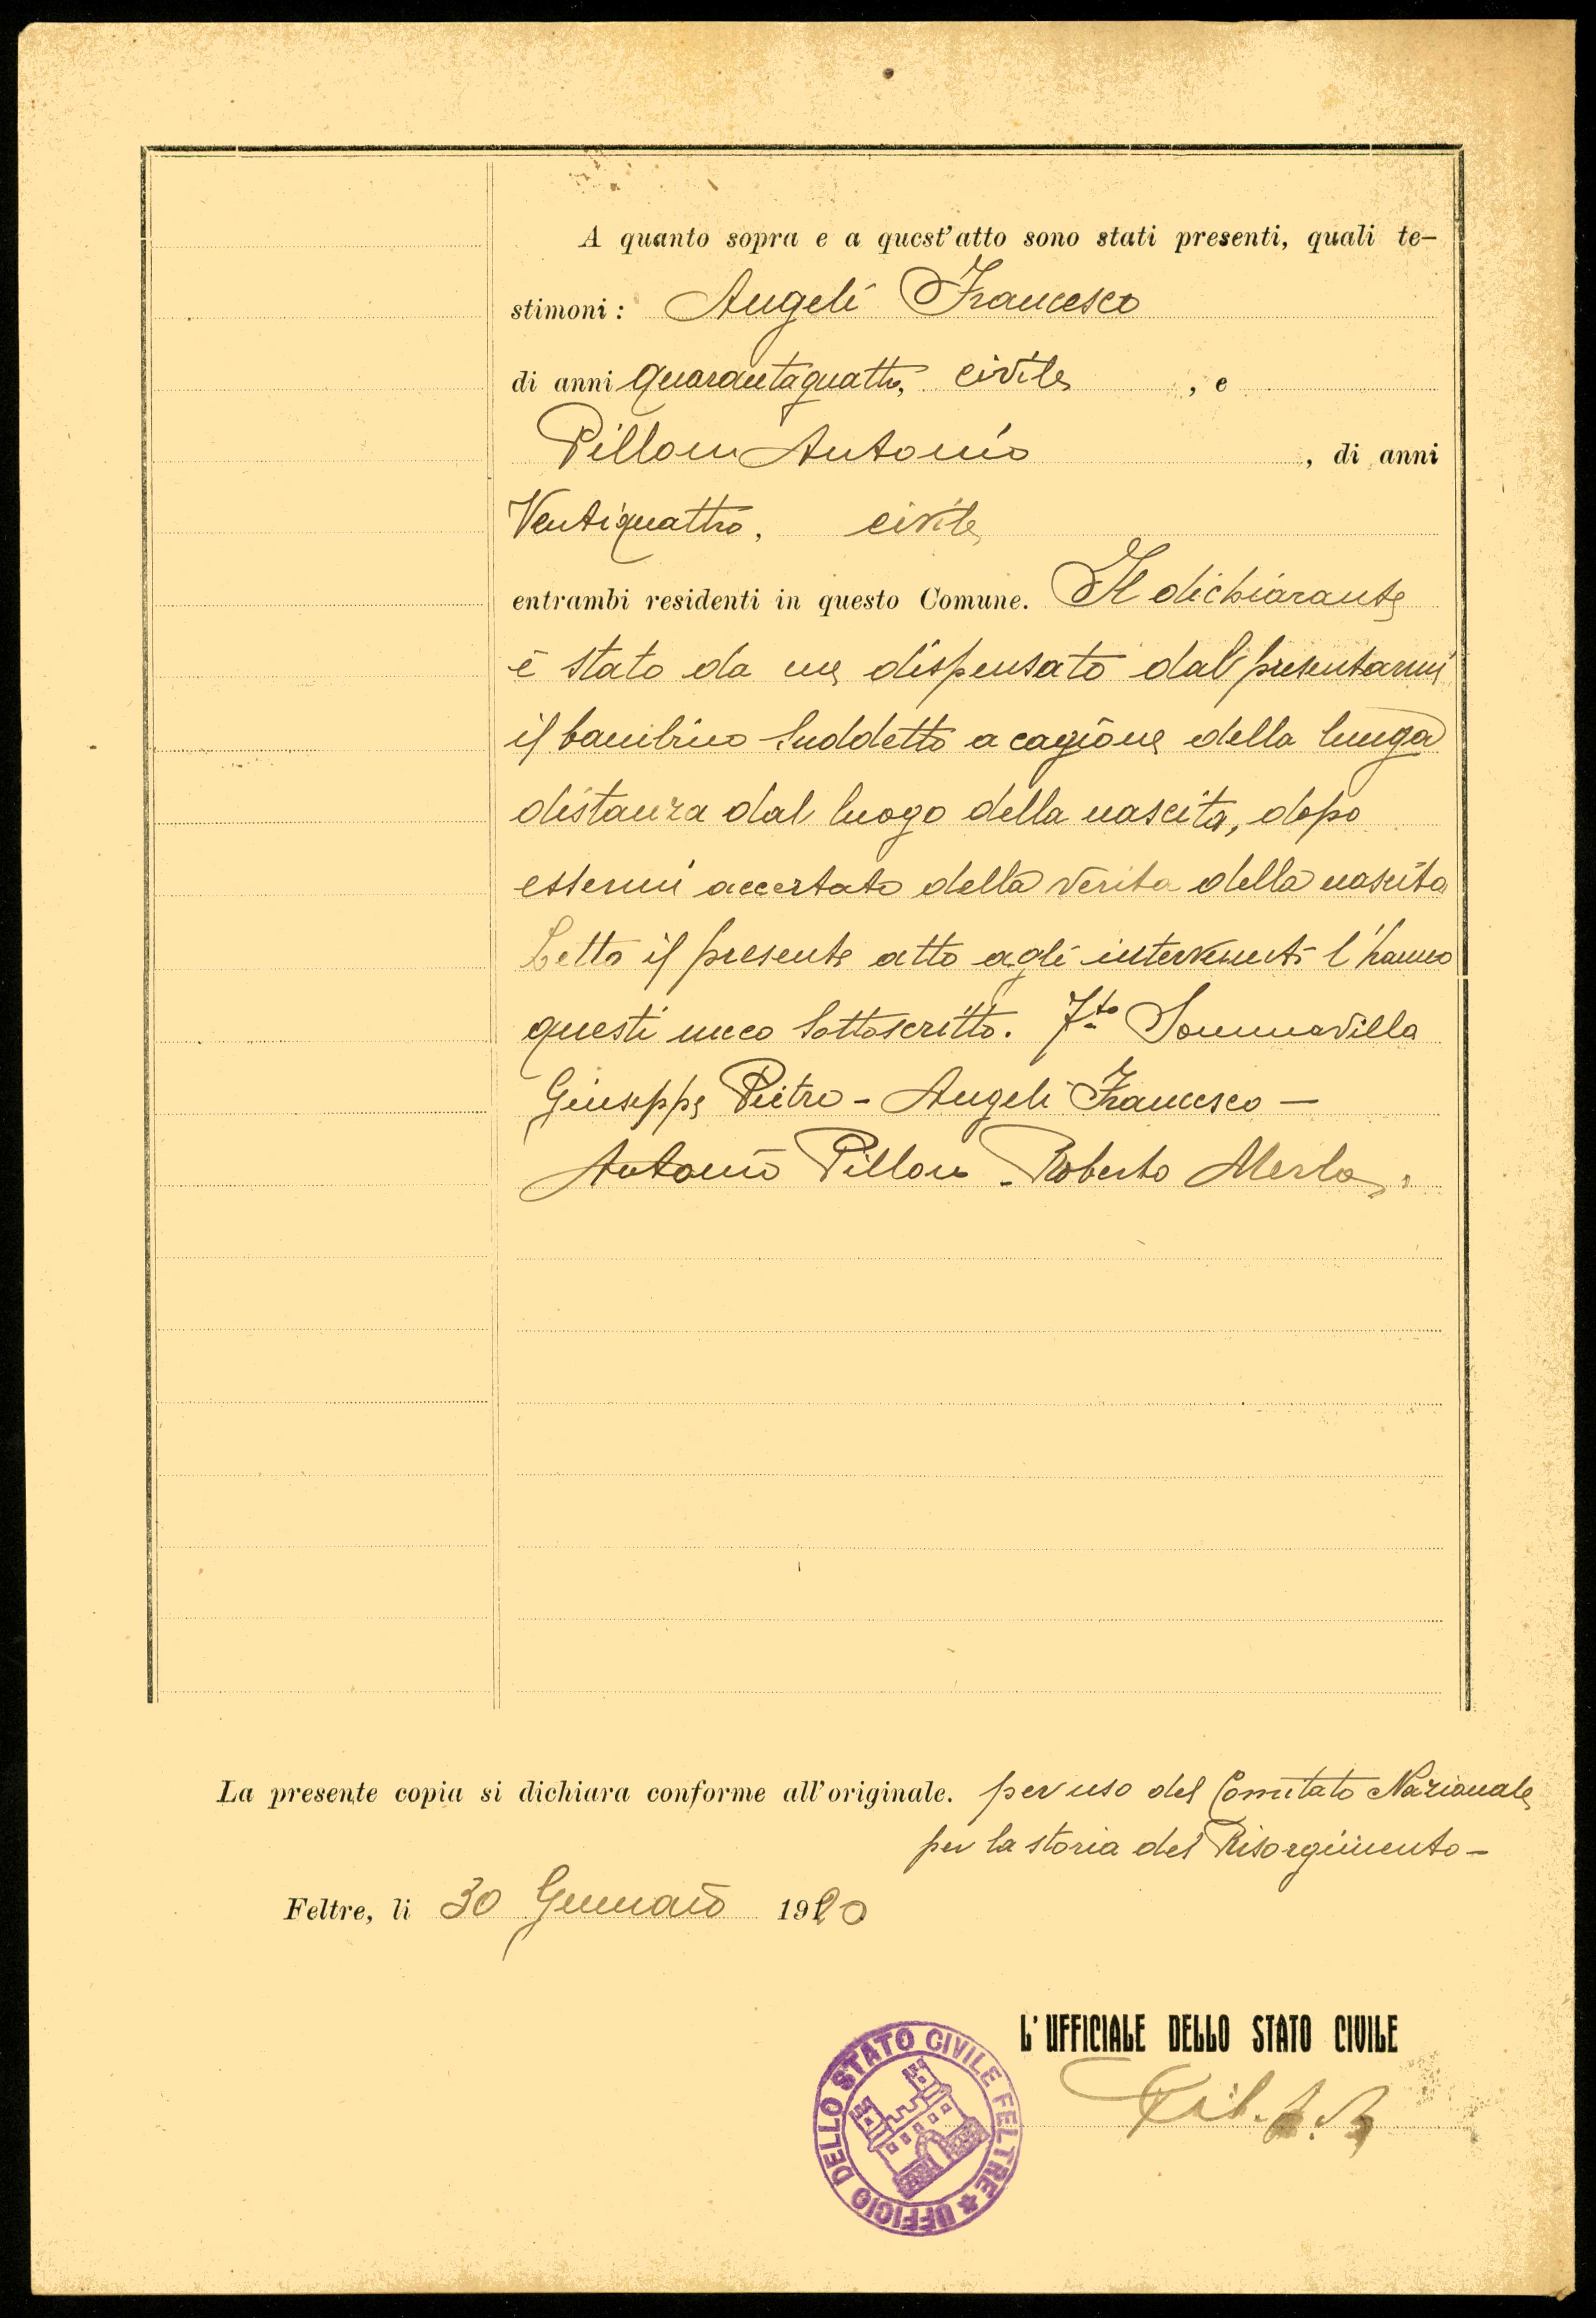 A quanto sopra e a quest'atto sono stati presenti, quali te-
stimoni: Angeli Francesco
di anni quarantaquattro, civile, e
Pillon Antonio, di anni
Ventiquattro, civile
entrambi residenti in questo Comune. Il dichiarante
è stato da me dispensato dal presentarmi
il bambino suddetto a cagione della lunga
distanza dal luogo della nascita, dopo
essermi accertato della verità della nascita
Letto il presente atto agli intervenuti l'hanno
questi meco sottoscritto. Fto Sommavilla
Giuseppe Pietro - Angeli Francesco -
Antonio Pillon - Roberto Merlo.
La presente copia si dichiara conforme all'originale. per uso del Comitato Nazionale
per la storia del Risorgimento -
Feltre, li 30 Gennaio 1920
L'UFFICIALE DELLO STATO CIVILE
UFFICIO DELLO STATO CIVILE FELTRE